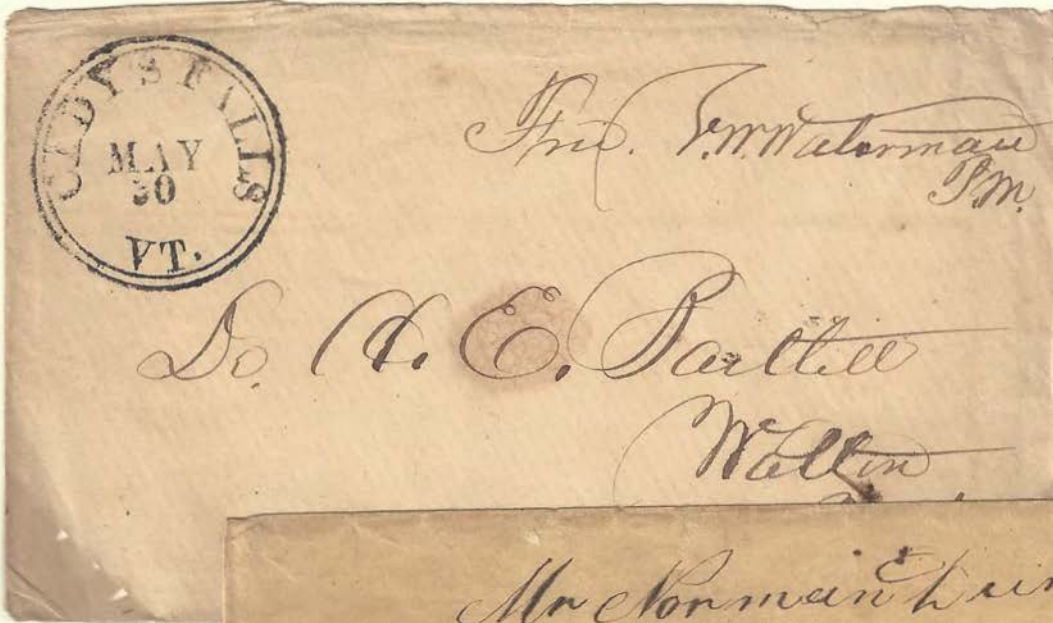 CADYS FALLS
MAY
30
VT.
Free. V.W. Waterman
P.M.
Dr. H. E.
Walton
Mr Norman